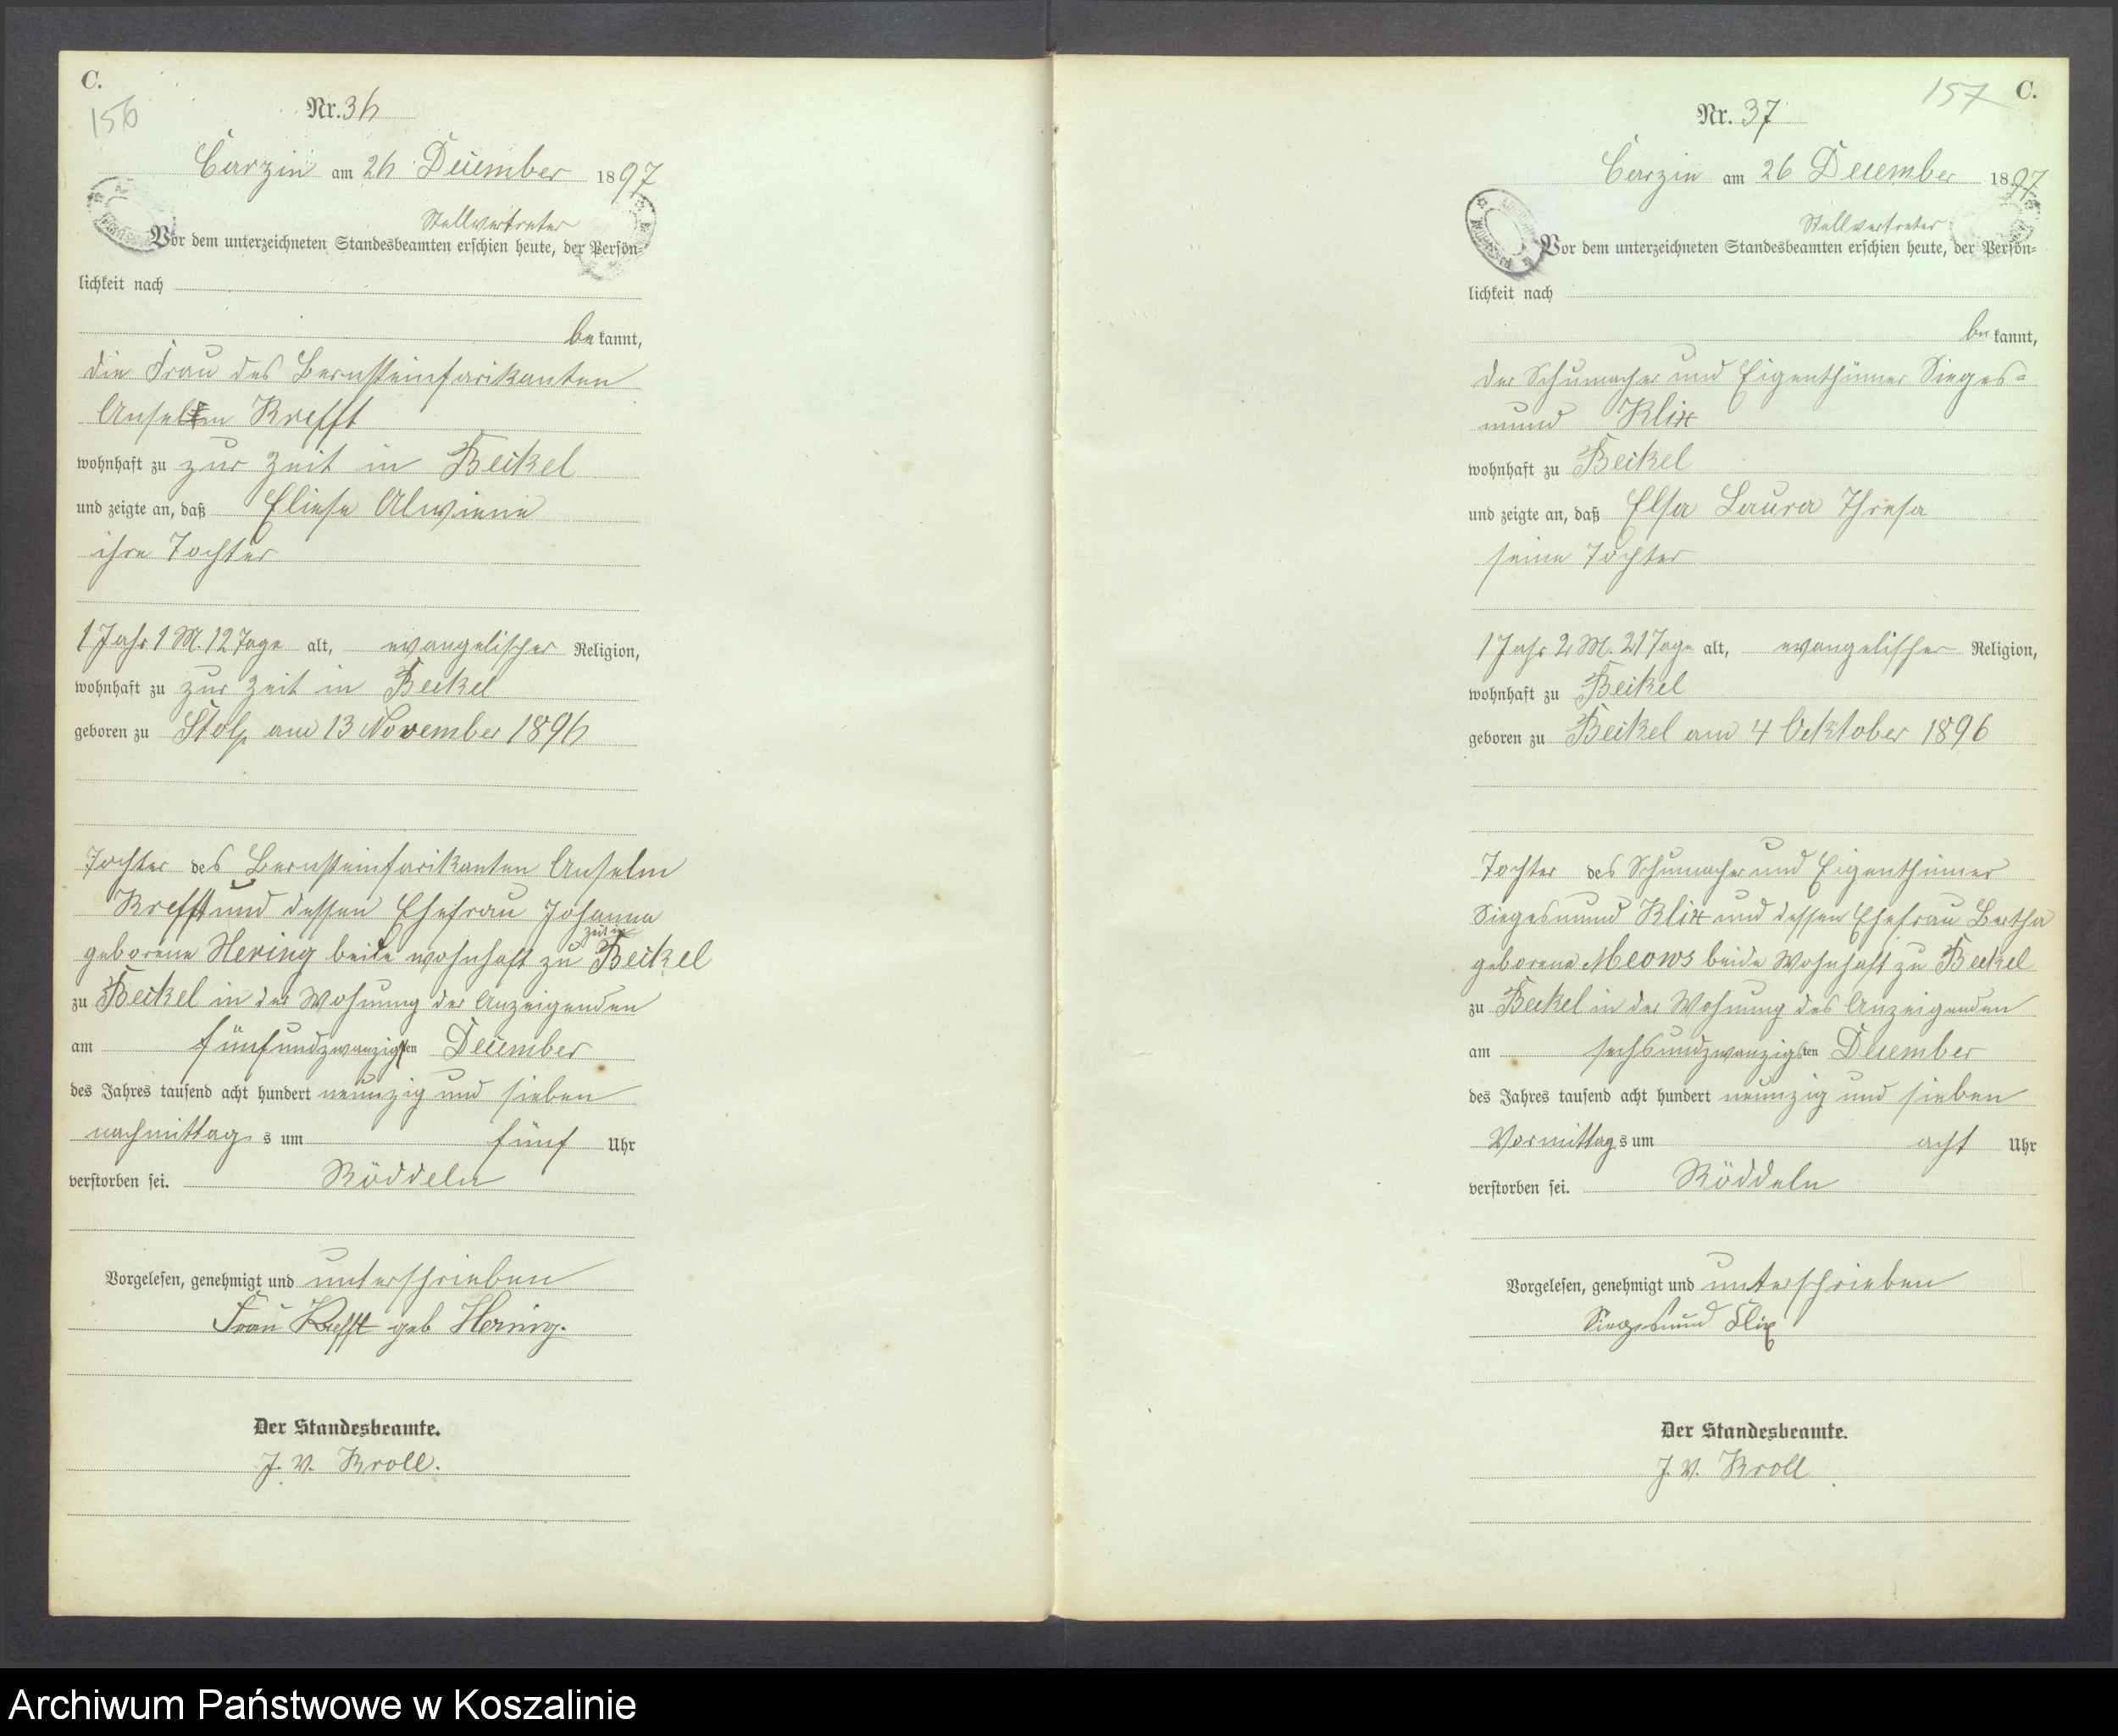 C.
156
Nr. 36
Carzin am 26 December 1897
Stellvertreter
Vor dem unterzeichneten Standesbeamten erschien heute, der Persön-
lichkeit nach
be kannt,
die Frau des Bernsteinfarikanten
Anselm Krefft
wohnhaft zu zur Zeit in Beikel
und zeigte an, daß Eliese Alwiene
ihre Tochter
1 Jahr 1 M. 12 Tage alt, evangelischer Religion,
wohnhaft zu zur Zeit in Beikel
geboren zu Stolp am 13 November 1896
Tochter des Bernsteinfarikanten Anselm
Krefft und dessen Ehefrau Johanna
geborene Hering beide wohnhaft zu Beikel
zu Beikel in der Wohnung der Anzeigenden
am fünfundzwanzigsten December
des Jahres tausend acht hundert neunzig und sieben
nachmittag s um fünf Uhr
verstorben sei. Röddeln
Vorgelesen, genehmigt und unterschrieben
Frau Krefft geb Hering.
Der Standesbeamte.
J. V. Kroll.
157 C.
Nr. 37
Carzin am 26 December 1897
Stellvertreter
Vor dem unterzeichneten Standesbeamten erschien heute, der Persön-
lichkeit nach
be kannt,
der Schumacher und Eigenthümer Sieges-
mund Klix
wohnhaft zu Beikel
und zeigte an, daß Elsa Laura Thresa
seine Tochter
1 Jahr 2 M. 21 Tage alt, evangelischer Religion,
wohnhaft zu Beikel
geboren zu Beikel am 4 Ocktober 1896
Tochter des Schumacher und Eigenthümer
Siegesmund Klix und dessen Ehefrau Bertha
geborene Meows beide Wohnhaft zu Beikel
zu Beikel in der Wohnung des Anzeigenden
am sechsundzwanzigsten December
des Jahres tausend acht hundert neunzig und sieben
Vormittag s um acht Uhr
verstorben sei. Röddeln
Vorgelesen, genehmigt und unterschrieben
Siegesmund Klix
Der Standesbeamte.
J. V. Kroll
Archiwum Państwowe w Koszalinie